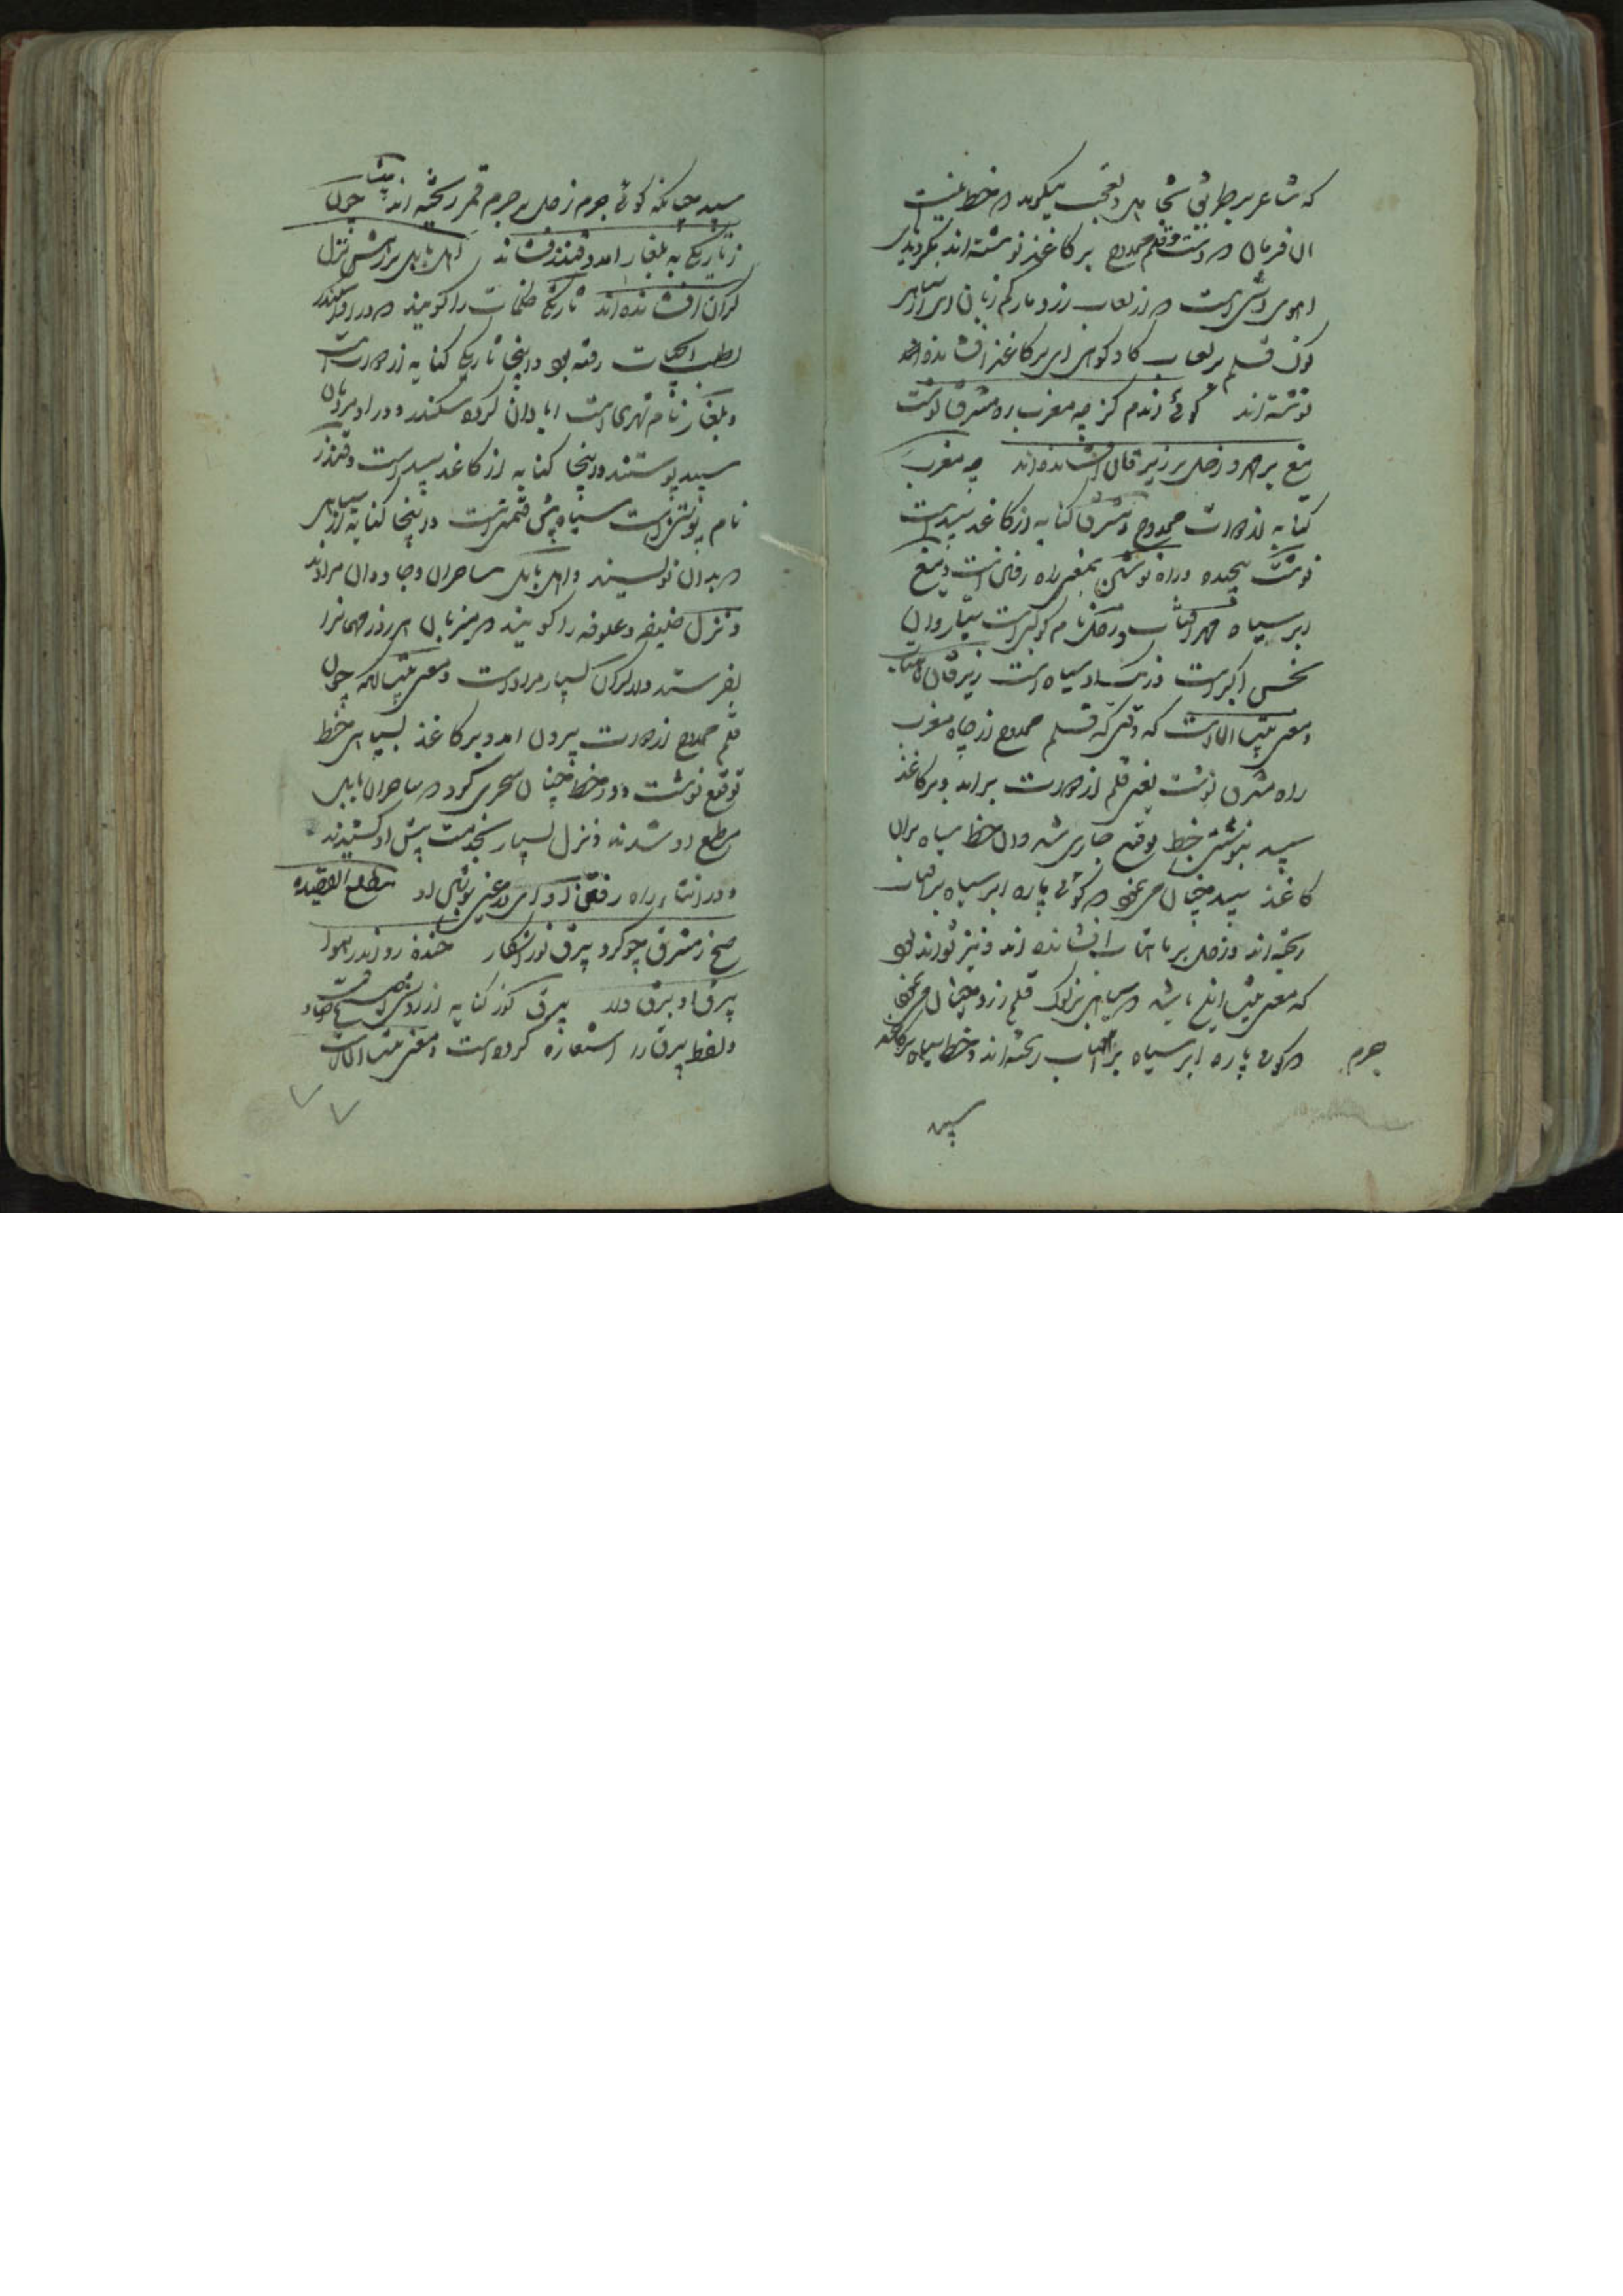 که شاعر بر طریق تجاهل و تعجب میگوید که خط نیست
ان فرمان که دست و قلم ممدوح بر کاغذ نوشته اند
اهوی است که از لعاب زرد مار کم زبان
نوک قلم بر لعاب گاو گوئی بر کاغذ افشانده اند
نوشته اند گوئ اندم کز چه مغرب ره مشرق نوشت
میغ بر مهر و زحل بر زبرقان افشانده اند چه مغرب
کنایه از دوات ممدوح و مشرق کنایه از کاغذ سپید است
نوشت پیچیده و راه نوشتن بمعنی راه رفتن است و میغ
ابر سیاه مهر افتاب و زحل نام کوکبی است سیار و ان
نحس اکبر است و رنگ او سیاه است زبرقان ماهتاب
و معنی بیت انست که وقتی که قلم ممدوح از چاه مغرب
راه مشرق نوشت یعنی قلم از دوات بر امد و بر کاغذ
سپید بنوشتن خط توقیع جاری شد و ان خط سیاه بران
کاغذ سپید چنان می نمود که گوئی پاره ابر سیاه بر افتاب
ریخته اند و زحل بر ماهتاب افشانده اند و نیز تواند بود
که معنی بیت این باشد که سیاهی بر نوک قلم زرد چنان می نمود
که گوئی پاره ابر سیاه بر افتاب ریخته اند و خط سیاه بر کاغذ
جرم
سپید
سپید چنانکه گوئی جرم زحل بر جرم قمر ریخته اند بیت چون
ز تاریکی به بلغار امد و قندز فشاند اهل بابل بر رهش نزل
گران افشانده اند تاریکی ظلمات را گویند که در او سکندر
بطلب ابحیات رفته بود و اینجا تاریکی کنایه از دوات است
و بلغار نام شهری است ابادان کرده سکندر و در او مردمان
سپید پوستند و اینجا کنایه از کاغذ سپید است و قندز
نام پوستین است سیاه پیش قیمتی است و اینجا کنایه از سیاهی
که بدان نویسند و اهل بابل ساحران و جادوان مرادند
و نزل ضیفه و علوفه را گویند که میزبان هر روز مهمانرا
بفرستند و از گران بسیار مراد است و معنی بیت انکه چون
قلم ممدوح از دوات بیرون امد و بر کاغذ بسیاهی خط
توقیع نوشت و در خط چنان سحری کرد که ساحران بابل
مطیع او شدند و نزل بسیار بخدمت پیش او کشیدند
و در اثناء راه رفتن مطلع القصیده
صبح ز مشرق چو کرد بیرق نور اشکار خنده زد اندر هوا
بیرق او برق وار بیرق نور کنایه از روشنی صبح است
و لفظ بیرق را استعاره کرده است و معنی بیت انست